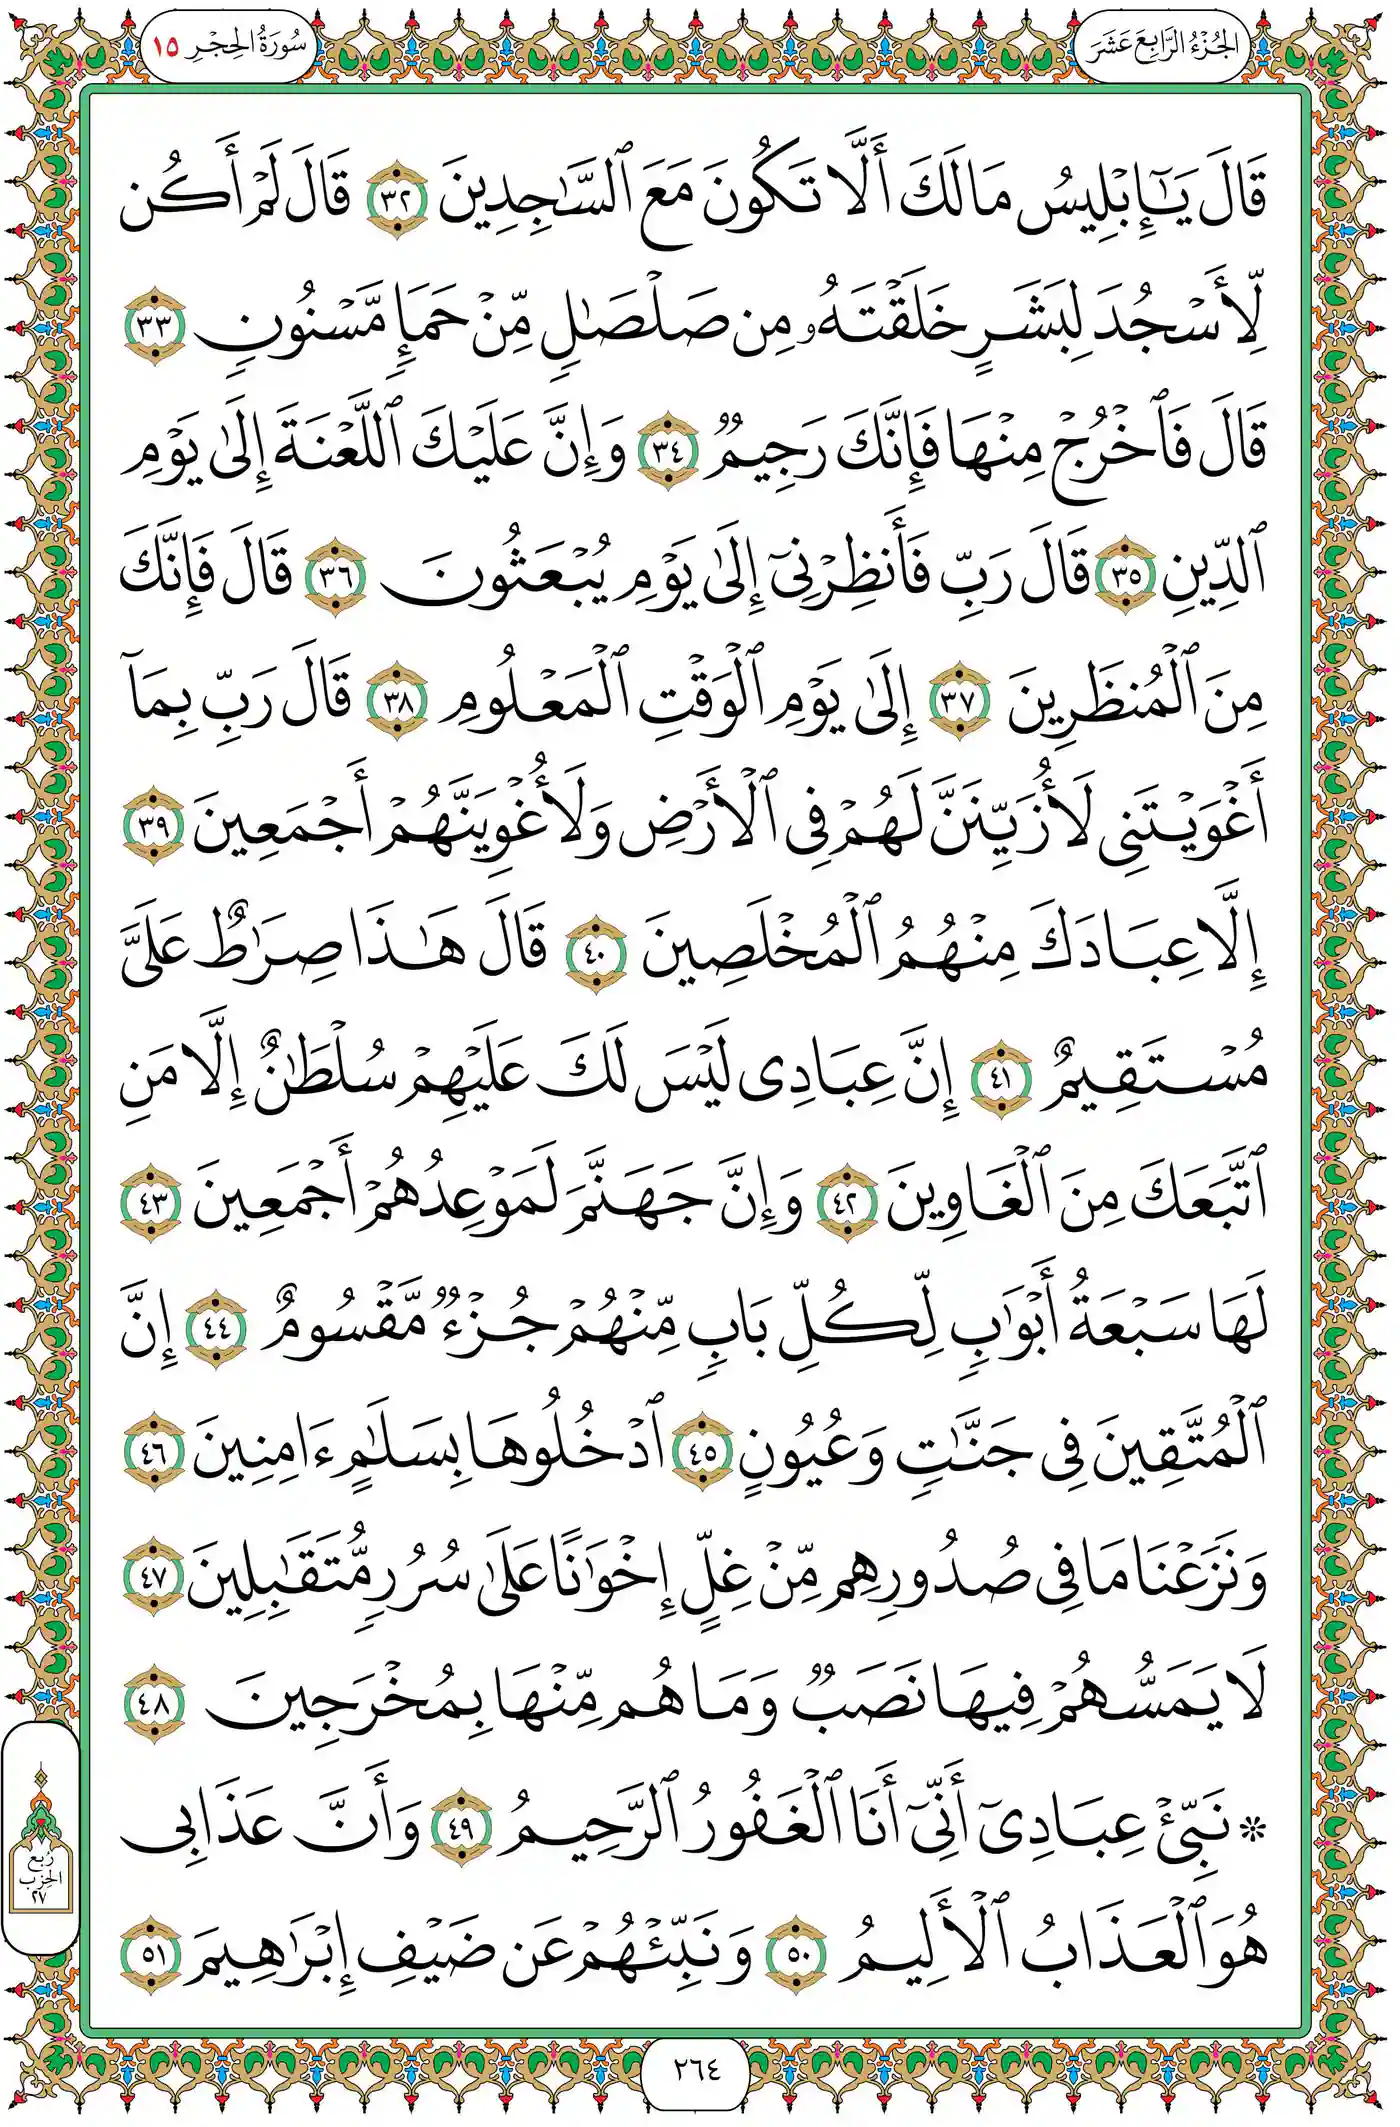 الجُزْءُ الرَّابِعَ عَشَرَ
سُورَةُ الحِجْرِ ١٥
قَالَ يَٰٓإِبْلِيسُ مَا لَكَ أَلَّا تَكُونَ مَعَ ٱلسَّٰجِدِينَ ٣٢ قَالَ لَمْ أَكُن
لِّأَسْجُدَ لِبَشَرٍ خَلَقْتَهُۥ مِن صَلْصَٰلٍ مِّنْ حَمَإٍ مَّسْنُونٍ ٣٣
قَالَ فَٱخْرُجْ مِنْهَا فَإِنَّكَ رَجِيمٌ ٣٤ وَإِنَّ عَلَيْكَ ٱللَّعْنَةَ إِلَىٰ يَوْمِ
ٱلدِّينِ ٣٥ قَالَ رَبِّ فَأَنظِرْنِىٓ إِلَىٰ يَوْمِ يُبْعَثُونَ ٣٦ قَالَ فَإِنَّكَ
مِنَ ٱلْمُنظَرِينَ ٣٧ إِلَىٰ يَوْمِ ٱلْوَقْتِ ٱلْمَعْلُومِ ٣٨ قَالَ رَبِّ بِمَآ
أَغْوَيْتَنِى لَأُزَيِّنَنَّ لَهُمْ فِى ٱلْأَرْضِ وَلَأُغْوِيَنَّهُمْ أَجْمَعِينَ ٣٩
إِلَّا عِبَادَكَ مِنْهُمُ ٱلْمُخْلَصِينَ ٤٠ قَالَ هَٰذَا صِرَٰطٌ عَلَىَّ
مُسْتَقِيمٌ ٤١ إِنَّ عِبَادِى لَيْسَ لَكَ عَلَيْهِمْ سُلْطَٰنٌ إِلَّا مَنِ
ٱتَّبَعَكَ مِنَ ٱلْغَاوِينَ ٤٢ وَإِنَّ جَهَنَّمَ لَمَوْعِدُهُمْ أَجْمَعِينَ ٤٣
لَهَا سَبْعَةُ أَبْوَٰبٍ لِّكُلِّ بَابٍ مِّنْهُمْ جُزْءٌ مَّقْسُومٌ ٤٤ إِنَّ
ٱلْمُتَّقِينَ فِى جَنَّٰتٍ وَعُيُونٍ ٤٥ ٱدْخُلُوهَا بِسَلَٰمٍ ءَامِنِينَ ٤٦
وَنَزَعْنَا مَا فِى صُدُورِهِم مِّنْ غِلٍّ إِخْوَٰنًا عَلَىٰ سُرُرٍ مُّتَقَٰبِلِينَ ٤٧
لَا يَمَسُّهُمْ فِيهَا نَصَبٌ وَمَا هُم مِّنْهَا بِمُخْرَجِينَ ٤٨
۞ نَبِّئْ عِبَادِىٓ أَنِّىٓ أَنَا ٱلْغَفُورُ ٱلرَّحِيمُ ٤٩ وَأَنَّ عَذَابِى
هُوَ ٱلْعَذَابُ ٱلْأَلِيمُ ٥٠ وَنَبِّئْهُمْ عَن ضَيْفِ إِبْرَٰهِيمَ ٥١
رُبع
الحِزب
٢٧
٢٦٤